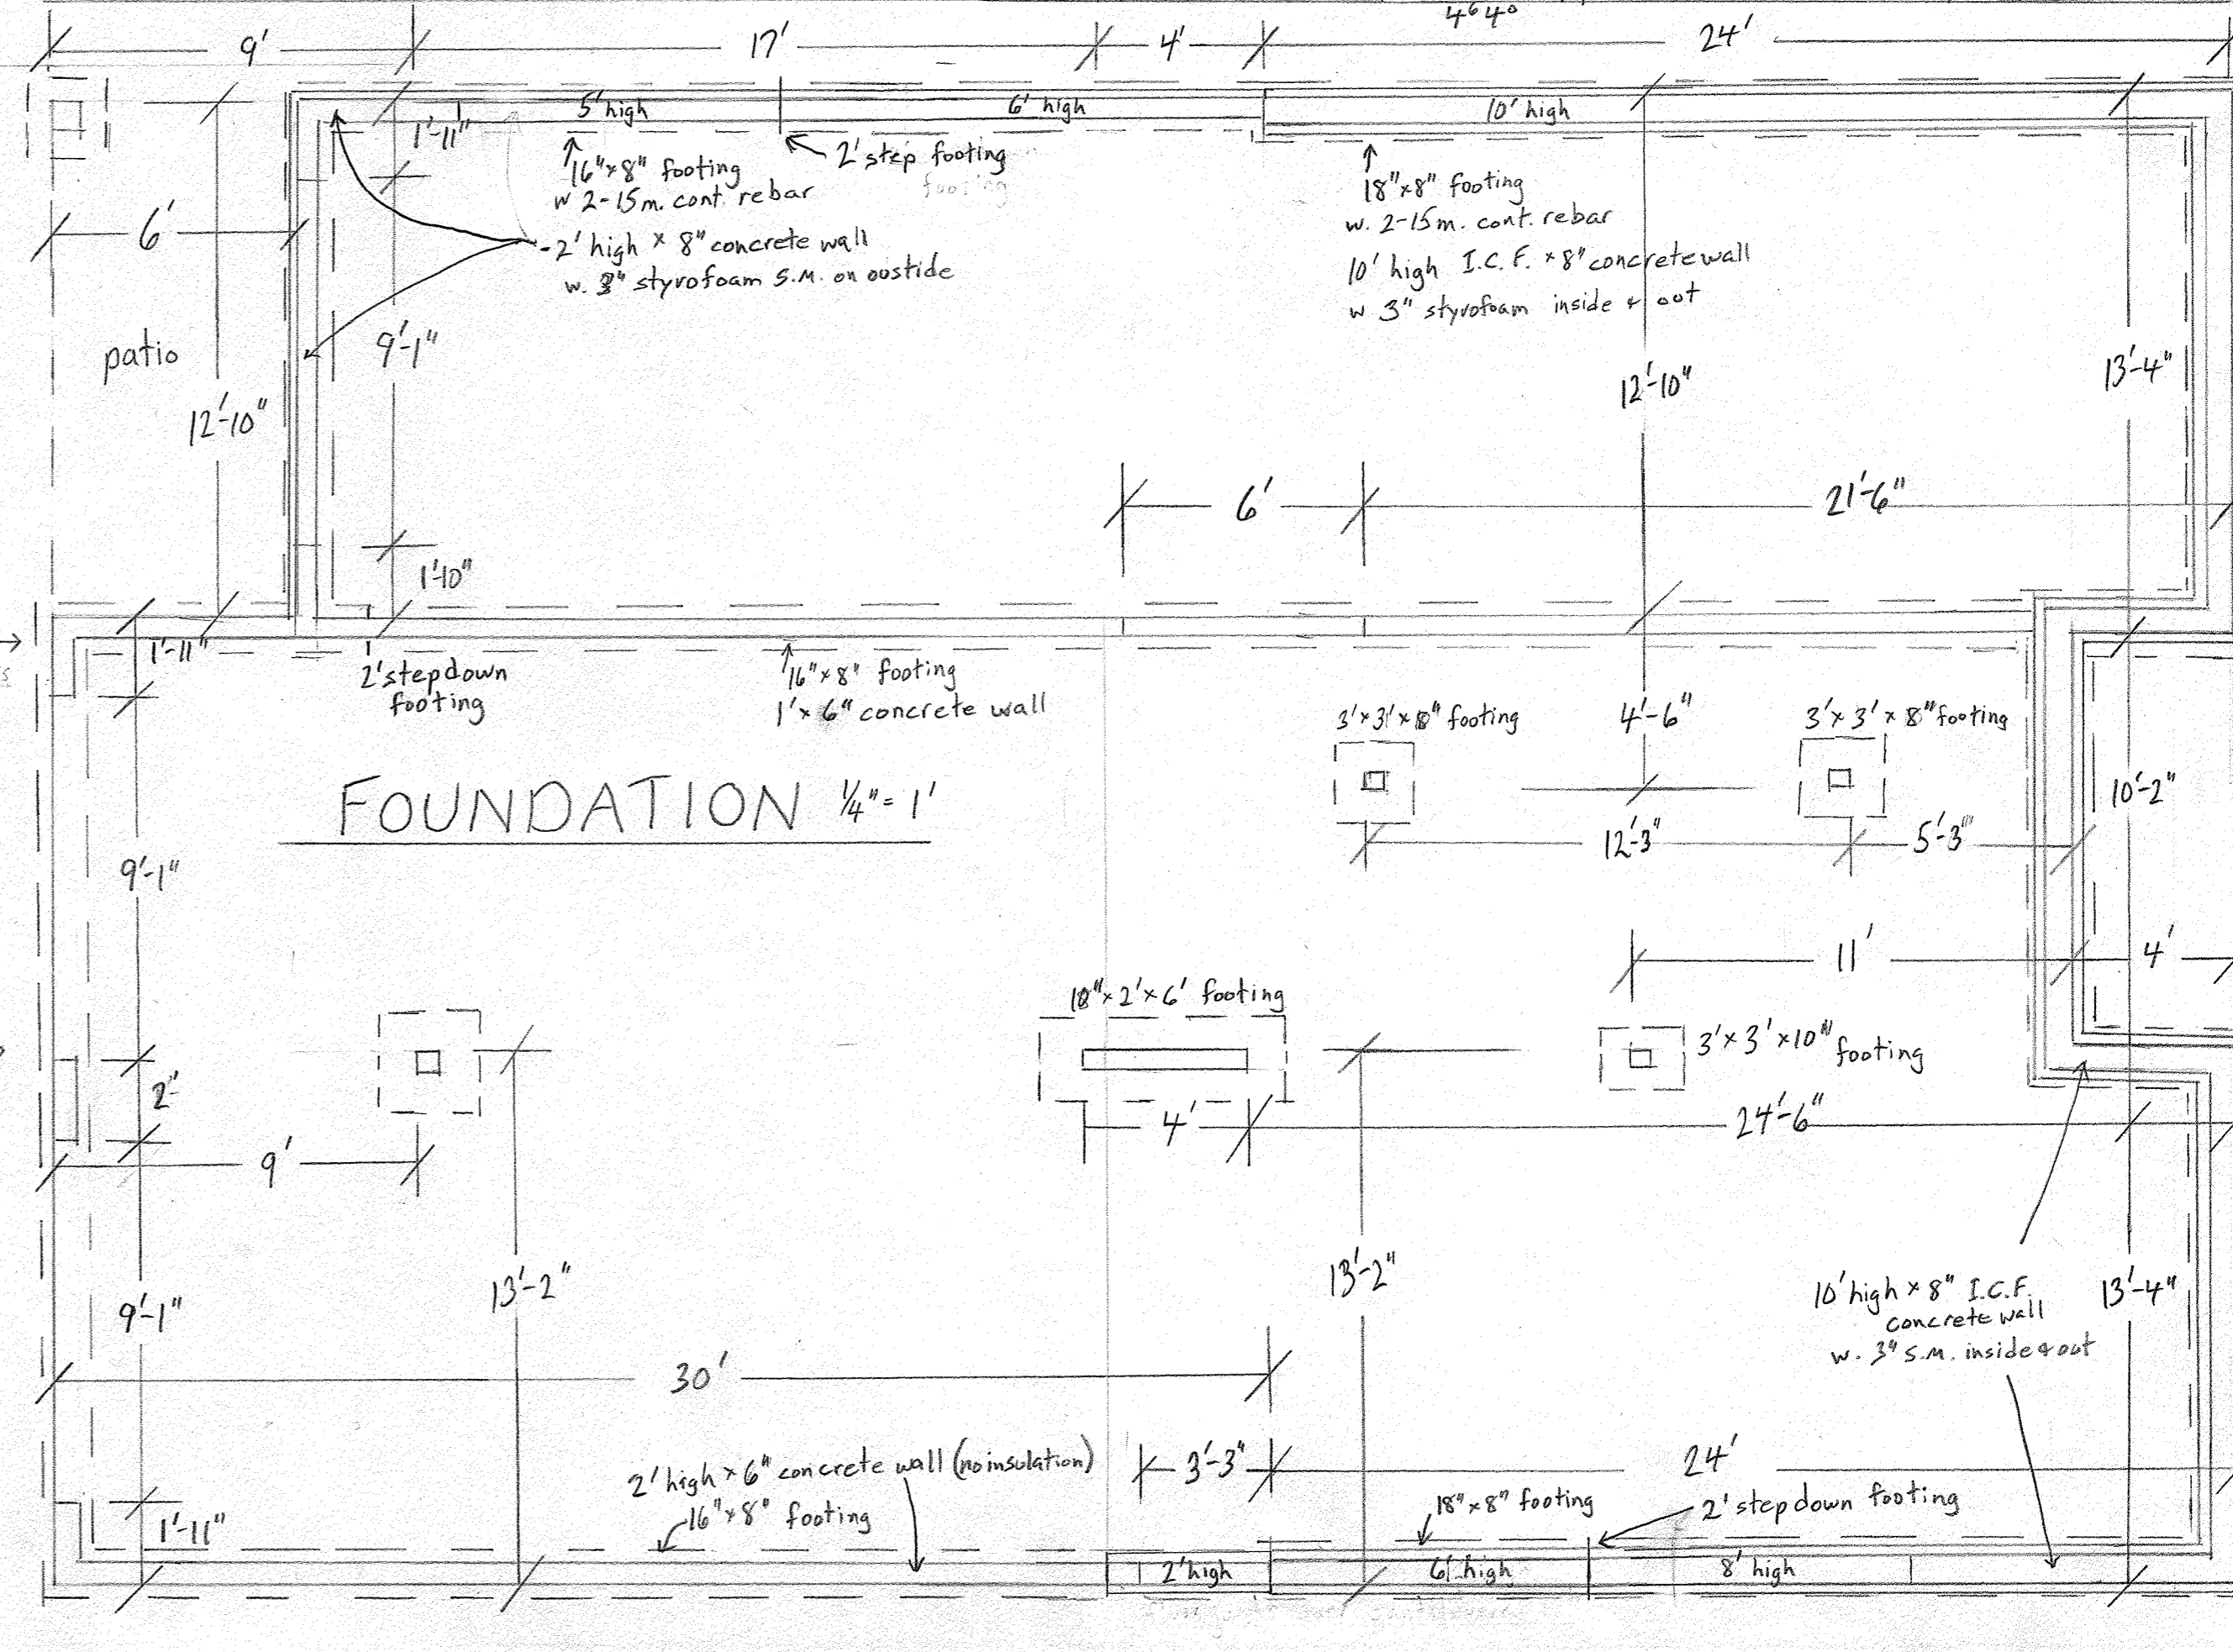 4⁶ 4⁰
9'
17'
4'
24'
5' high
6' high
10' high
1'-11"
16"x8" footing
w 2-15m. cont. rebar
2' step footing
footing
18"x8" footing
w. 2-15m. cont. rebar
10' high I.C.F. x 8" concrete wall
w 3" styrofoam inside & out
6'
-2' high x 8" concrete wall
w. 3" styrofoam S.M. on oustide
patio
9'-1"
12'-10"
12'-10"
13'-4"
6'
21'-6"
1'-10"
1'-11"
2' step down
footing
16"x8" footing
1' x 6" concrete wall
3'x3'x8" footing
4'-6"
3'x3'x8" footing
FOUNDATION 1/4" = 1'
12'-3"
5'-3"
10'-2"
9'-1"
11'
4'
18"x2'x6' footing
3'x3'x10" footing
2'
4'
24'-6"
9'
13'-2"
13'-2"
9'-1"
10' high x 8" I.C.F.
concrete wall
w. 3" S.M. inside & out
13'-4"
30'
2' high x 6" concrete wall (no insulation)
16"x8" footing
3'-3"
24'
18"x8" footing
2' step down footing
1'-11"
2' high
6' high
8' high